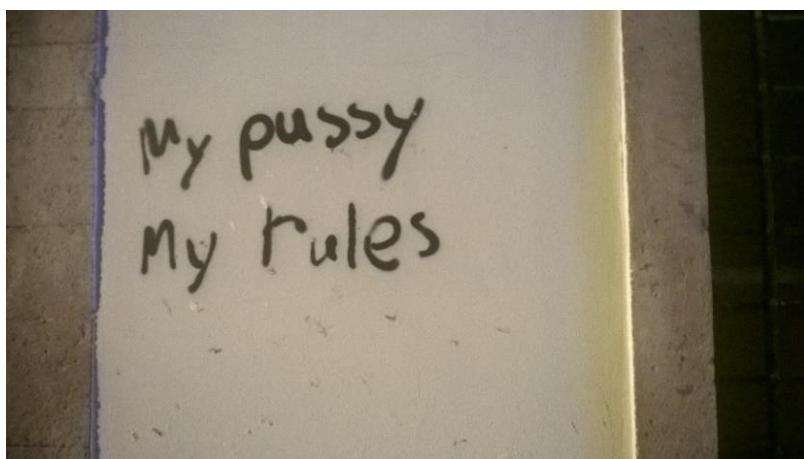 My pussy
My rules